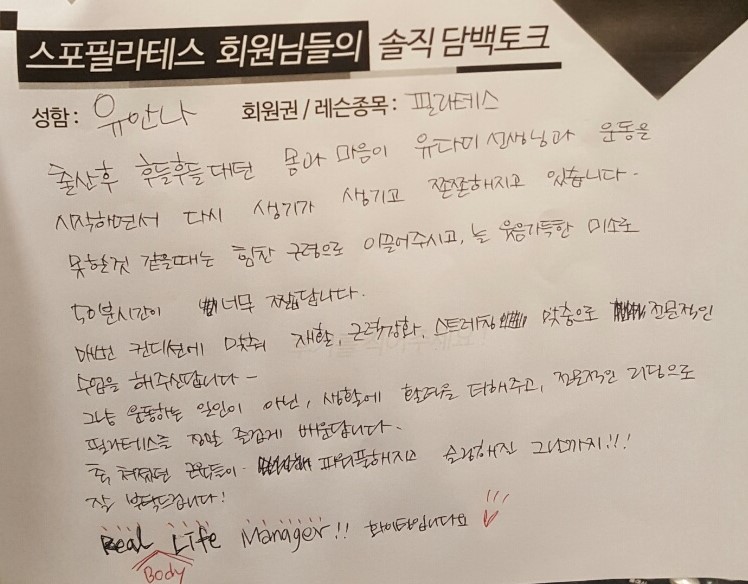 스포필라테스 회원님들의 솔직 담백토크
성함 : 유안나 회원권 / 레슨종목 : 필라테스
출산후 후들후들대던 몸과 마음이 유다미 선생님과 운동을
시작해면서 다시 생기가 생기고 쫀쫀해지고 있습니다.
못할것 같을때는 힘찬 구령으로 이끌어주시고, 늘 웃음가득한 미소로
50분시간이 너무 짧답니다.
매번 컨디션에 맞춰 재활, 근력강화, 스트레칭 맞춤으로 전문적인
수업을 해주신답니다 ~
그냥 운동하는 일인이 아닌, 생활에 활력을 더해주고, 전문적인 리딩으로
필라테스를 정말 즐겁게 배운답니다.
축 쳐졌던 근육들이 파워풀해지고 건강해진 그날까지!!!
잘 부탁드립니다!
Real Life Manager!! 화이팅입니다요
Body